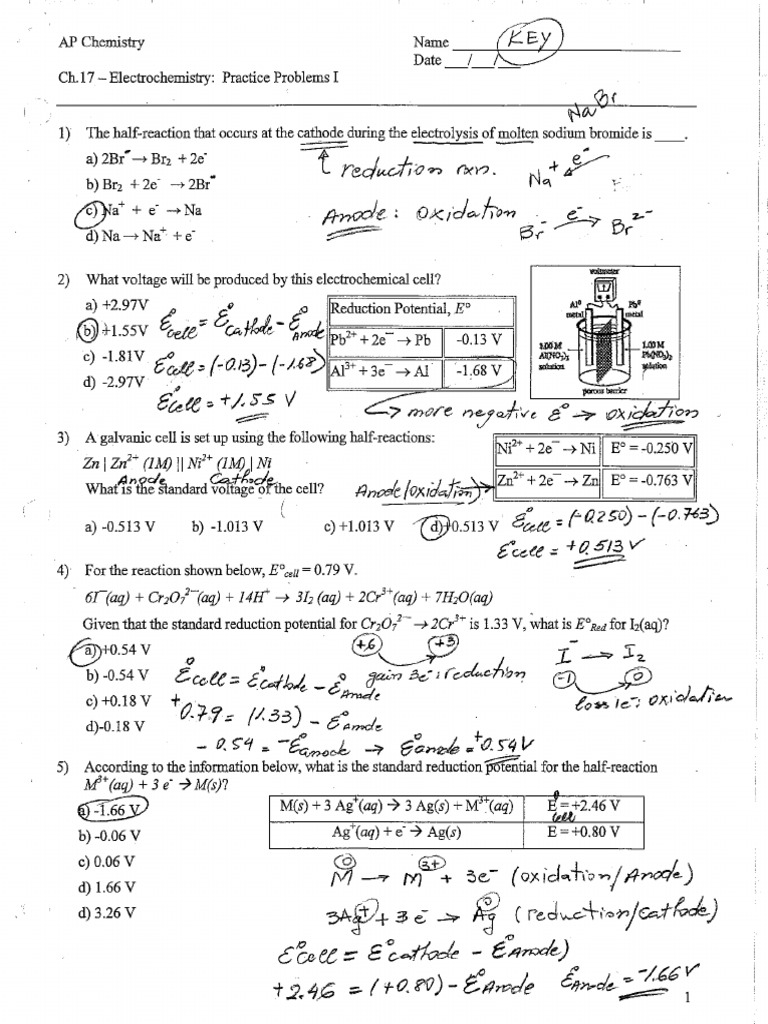 AP Chemistry
Name KEY
Date __/__/__
Ch.17 – Electrochemistry: Practice Problems I
NaBr
1) The half-reaction that occurs at the cathode during the electrolysis of molten sodium bromide is ____.
a) 2Br⁻ → Br₂ + 2e⁻
reduction rxn.
Na⁺ e⁻
b) Br₂ + 2e⁻ → 2Br⁻
c) Na⁺ + e⁻ → Na
Anode: Oxidation
Br⁻ e⁻ → Br²⁻
d) Na → Na⁺ + e⁻
2) What voltage will be produced by this electrochemical cell?
a) +2.97V
b) +1.55V
c) -1.81V
d) -2.97V
Ɛ°cell = Ɛ°Cathode - Ɛ°Anode
Ɛ°cell = (-0.13) - (-1.68)
Ɛ°cell = +1.55 V
Reduction Potential, E°
Pb²⁺ + 2e⁻ → Pb -0.13 V
Al³⁺ + 3e⁻ → Al -1.68 V
voltmeter
Al⁰ metal
Pb⁰ metal
1.00 M
1.00 M
solution
solution
porous barrier
↳ more negative Ɛ° → oxidation
3) A galvanic cell is set up using the following half-reactions:
Zn | Zn²⁺ (1M) || Ni²⁺ (1M) | Ni
Anode Cathode
What is the standard voltage of the cell?
Ni²⁺ + 2e⁻ → Ni E° = -0.250 V
Zn²⁺ + 2e⁻ → Zn E° = -0.763 V
Anode (oxidation)
a) -0.513 V b) -1.013 V c) +1.013 V d) +0.513 V
Ɛ°cell = (-0.250) - (-0.763)
Ɛ°cell = +0.513 V
4) For the reaction shown below, E°cell = 0.79 V.
6I⁻(aq) + Cr₂O₇²⁻(aq) + 14H⁺ → 3I₂ (aq) + 2Cr³⁺(aq) + 7H₂O(aq)
Given that the standard reduction potential for Cr₂O₇²⁻ → 2Cr³⁺ is 1.33 V, what is E°Red for I₂(aq)?
a) +0.54 V
b) -0.54 V
c) +0.18 V
d)-0.18 V
+6 +3
gain 3e⁻: reduction
I⁻ → I₂
-1 0
loss 1e⁻: oxidation
Ɛ°cell = Ɛ°cathode - Ɛ°Anode
+0.79 = (1.33) - Ɛ°Anode
- 0.54 = -Ɛ°anode → Ɛ°anode = +0.54V
5) According to the information below, what is the standard reduction potential for the half-reaction
M³⁺(aq) + 3 e⁻ → M(s)?
a) -1.66 V
b) -0.06 V
c) 0.06 V
d) 1.66 V
d) 3.26 V
M(s) + 3 Ag⁺(aq) → 3 Ag(s) + M³⁺(aq) E°cell = +2.46 V
Ag⁺(aq) + e⁻ → Ag(s) E = +0.80 V
0 3+
M → M + 3e⁻ (oxidation/Anode)
3Ag⁺ + 3e⁻ → Ag 0 (reduction/cathode)
Ɛ°cell = Ɛ°cathode - Ɛ°Anode)
+2.46 = (+0.80) - Ɛ°Anode Ɛ°Anode = -1.66 V
1